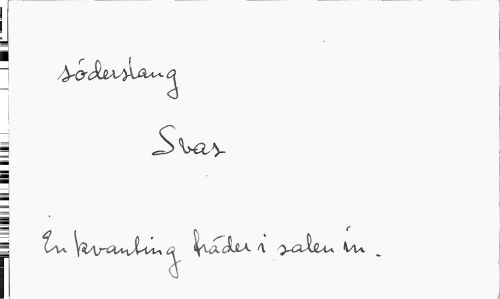 söderslang
Svas
En kvanting träder i salen in.